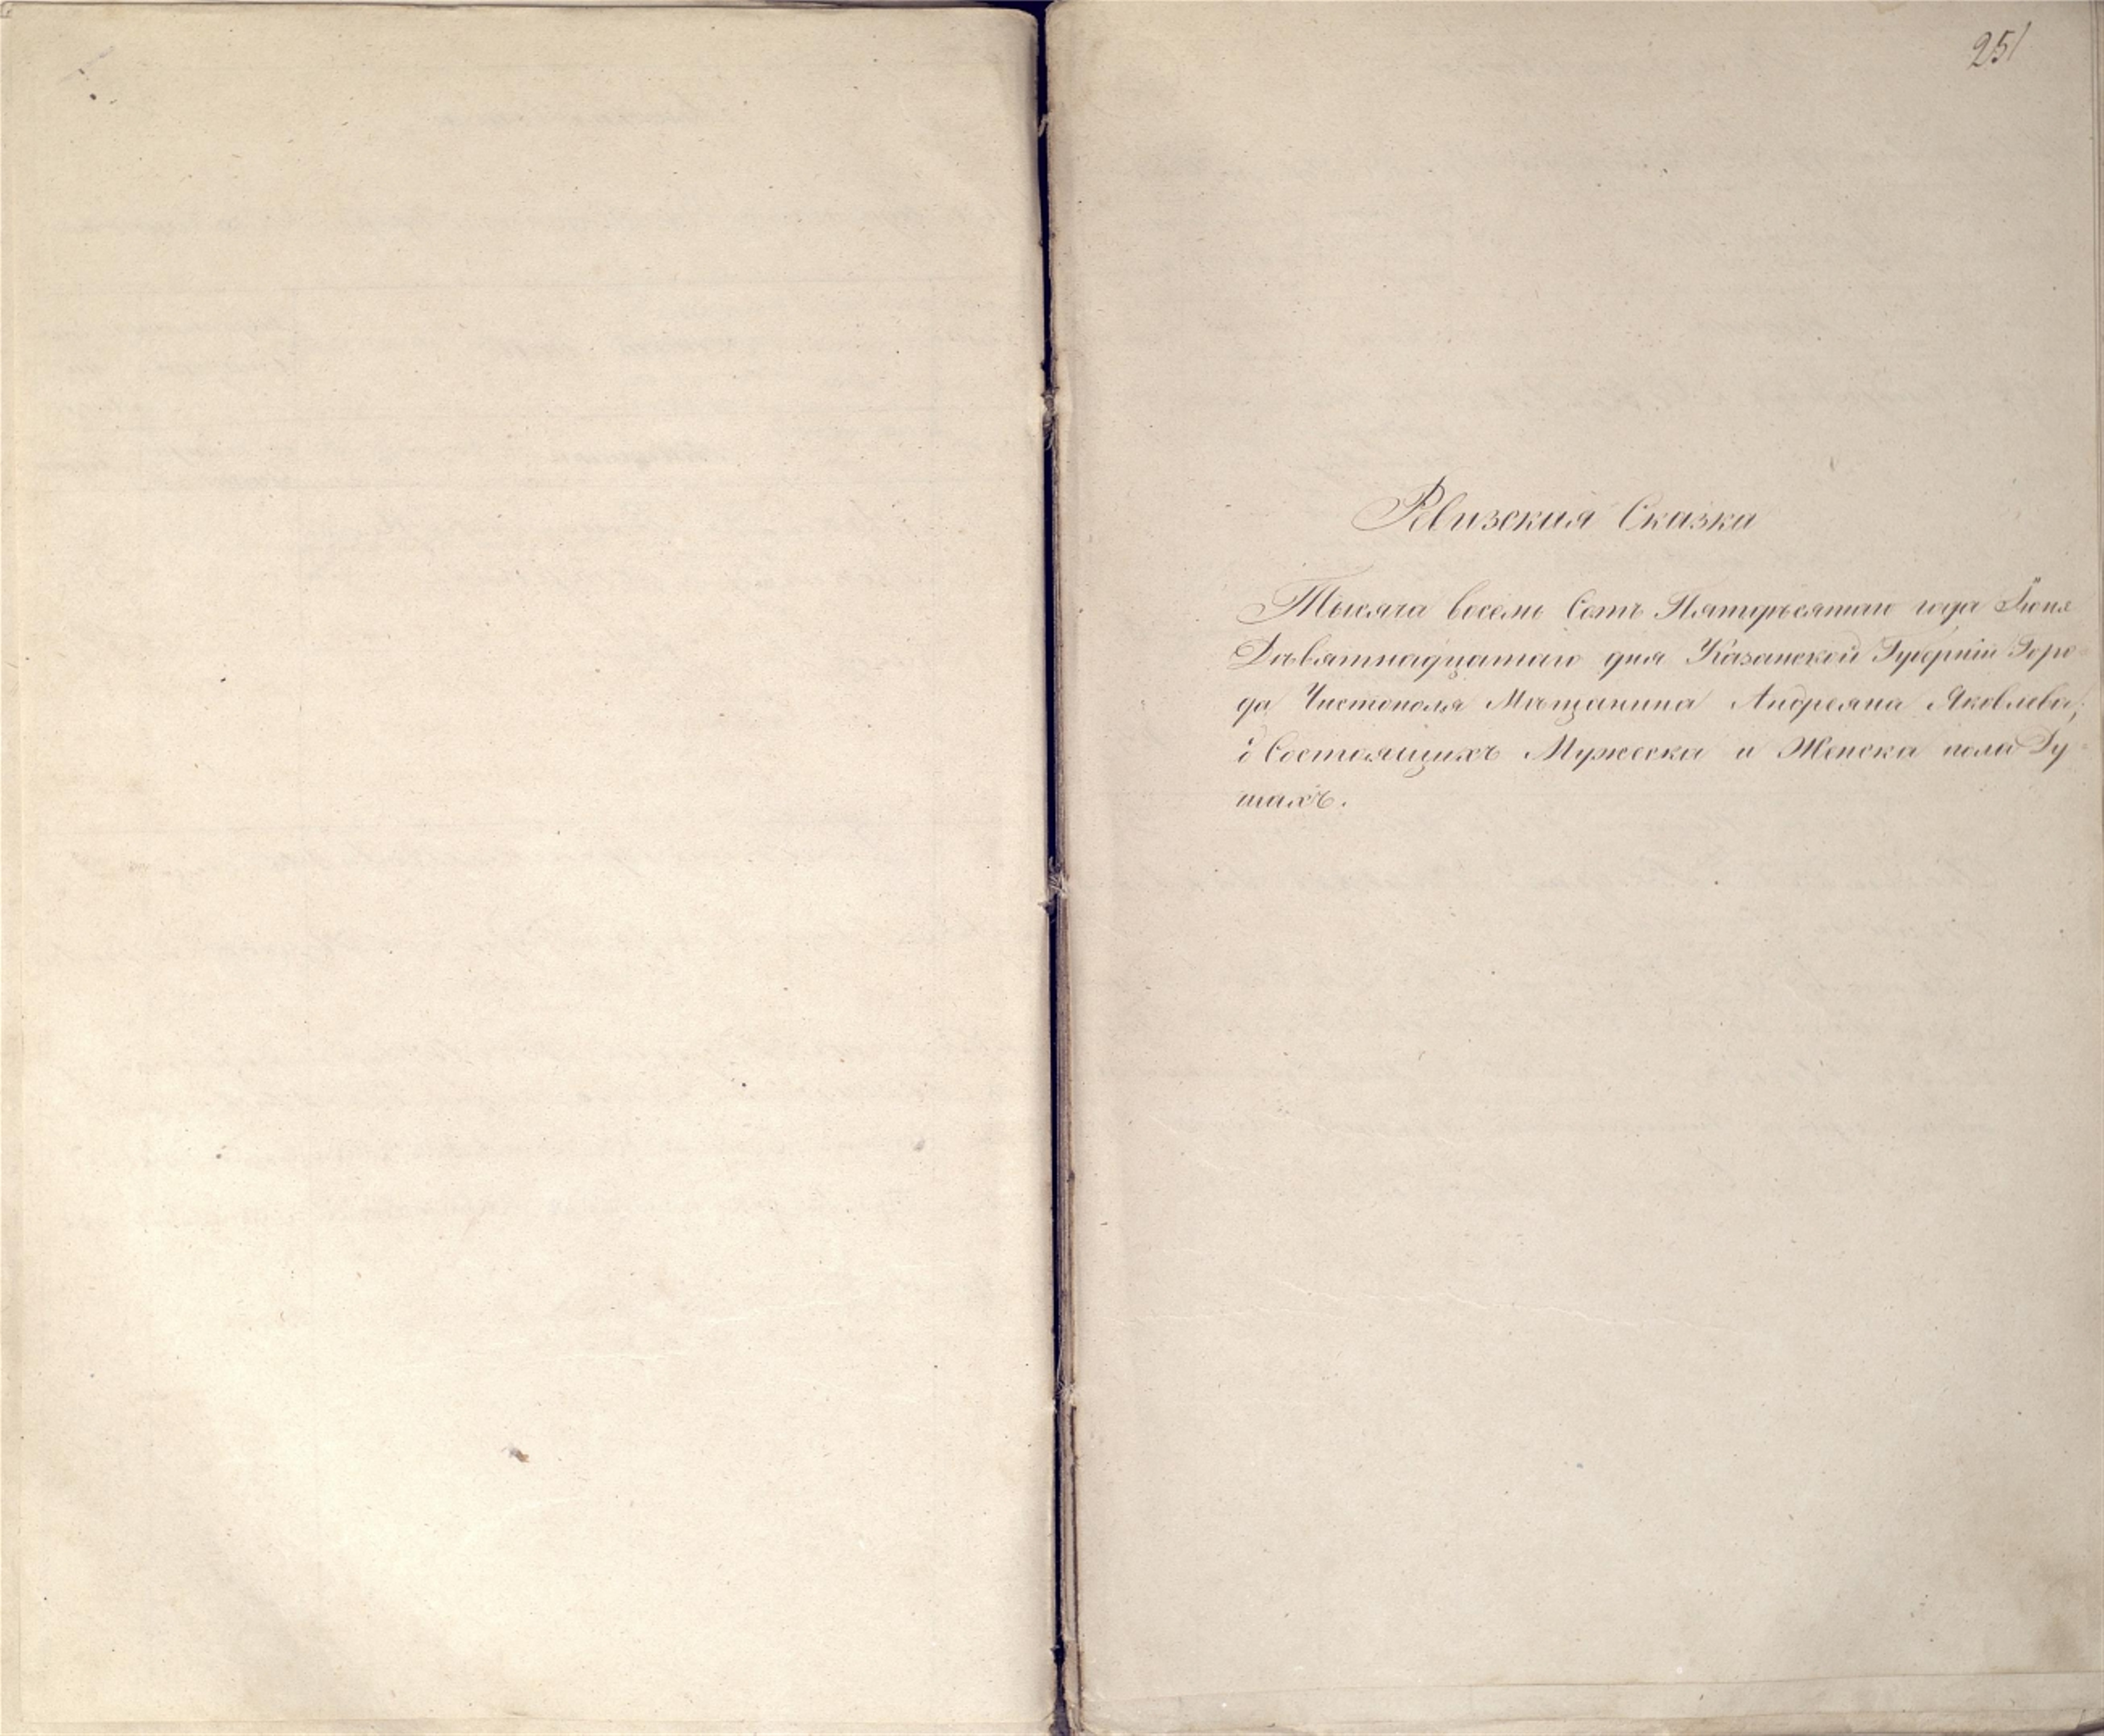 251
Ревизская Сказка
Тысяча восемь Сотъ Пятидѣсятаго года Іюня
Дѣвятнадцатаго дня Казанской Губерніи Горо-
да Чистополя Мѣщанина Андреяна Яковлева,
о Состоящихъ Мужеска и Женска пола Ду-
шахъ.